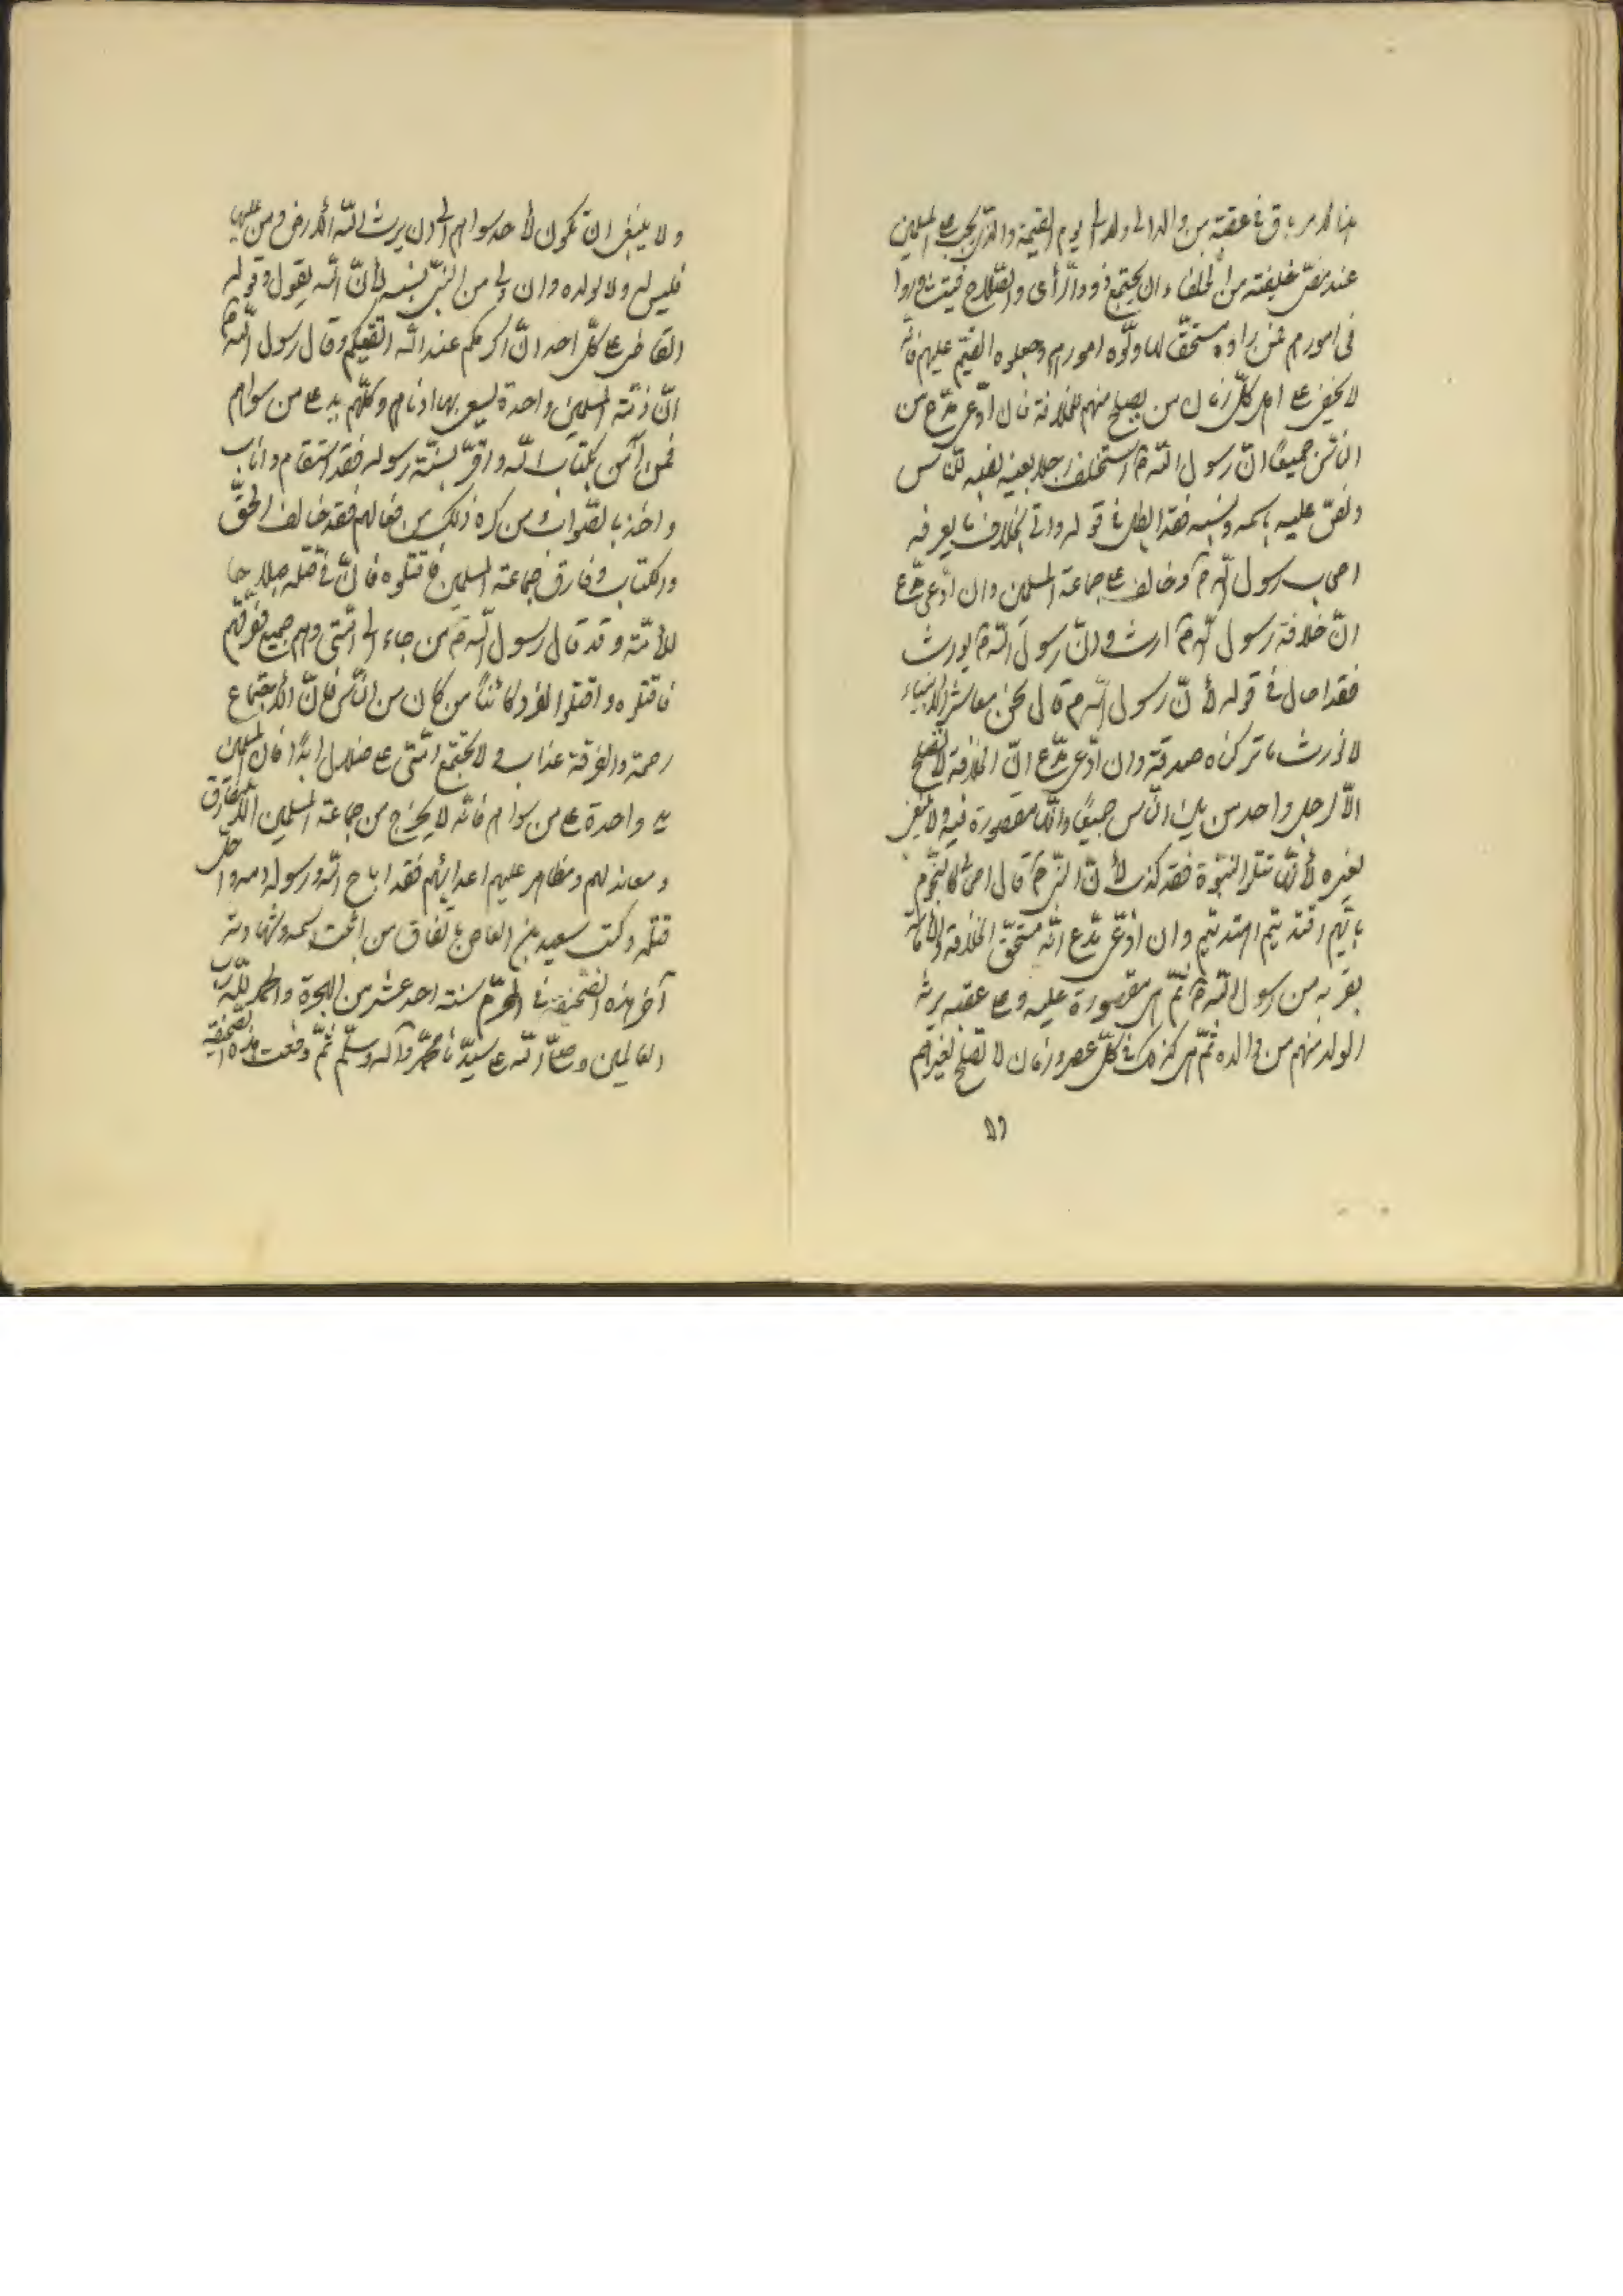 هذا الامر باق فى عقبه من والد الى ولد الى يوم القيمة والذى يجب على المسلمين
عند مضى خليفته من الخلفاء ان يجتمع ذووا الرأى والصلاح فيتشاوروا
فى امورهم فمن راوه مستحقّا لها ولّوه امورهم وجعلوه القيّم عليهم فانّه
لا يخفى على اهل كلّ زمان من يصلح منهم للخلافة فان ادّعى مدّع من
النّاس جميعًا انّ رسول اللّه ص استخلف رجلا بعينه نصبه للنّاس
ونصّ عليه باسمه ونسبه فقد ابطل فى قوله واتى بخلاف ما يعرفه
اصحاب رسول اللّه ص وخالف على جماعة المسلمين وان ادّعى مدّع
انّ خلافة رسول اللّه ص ارث وانّ رسول اللّه ص يورث
فقد احال فى قوله لأنّ رسول اللّه ص قال نحن معاشر الأنبياء
لا نورث ما تركناه صدقة وان ادّعى مدّع انّ الخلافة لا تصلح
الّا لرجل واحد من بين النّاس جميعًا وانّها مقصورة فيه ولا تنبغى
لغيره لأنّها تتلو النبوّة فقد كذب لأنّ النبىّ ص قال اصحابى كالنّجوم
بايّهم اقتديتم اهتديتم وان ادّعى مدّع انّه مستحقّ الخلافة والأمامة
بقربه من رسول اللّه ص ثمّ هى مقصورة عليه وعلى عقبه يرثها
الولد منهم من والده ثمّ هى كذلك فى كلّ عصر وزمان لا تصلح لغيرهم
ولا ينبغى ان تكون لأحد سواهم الى ان يرث اللّه الأرض ومن عليها
فليس له ولا لولده وان دنى من النبىّ نسبه لأنّ اللّه يقول وقوله
القاضى على كلّ احد انّ اكرمكم عند اللّه اتقيكم وقال رسول اللّه ص
انّ ذمّة المسلمين واحدة يسعى بها ادناهم وكلّهم يد على من سواهم
فمن آمن بكتاب اللّه واقرّ بسنّة رسوله فقد استقام واناب
واخذ بالصّواب ومن كره ذلك من فعالهم فقد خالف الحقّ
والكتاب وفارق جماعة المسلمين فاقتلوه فانّ فى قتله صلاحا
للأمّة وقد قال رسول اللّه ص من جاء الى امّتى وهم جميع ففرّقهم
فاقتلوه واقتلوا الفرد كائنًا من كان من النّاس فانّ الأجتماع
رحمة والفرقة عذاب ولا تجتمع امّتى على ضلال ابدًا فان المسلمين
يد واحدة على من سواهم فانّه لا يخرج من جماعة المسلمين الّا مفارق
ومعاند لهم ومظاهر عليهم اعدائهم فقد اباح اللّه ورسوله دمه واحلّ
قتله وكتب سعيد بن العاص باتّفاق من اثبت اسمه وشهادته
آخر هذه الصّحيفة فى المحرّم سنة احد عشر من الهجرة والحمد للّه ربّ
العالمين وصلّى اللّه على سيّدنا محمّد وآله وسلّم ثمّ دفعت هذه الصّحيفة